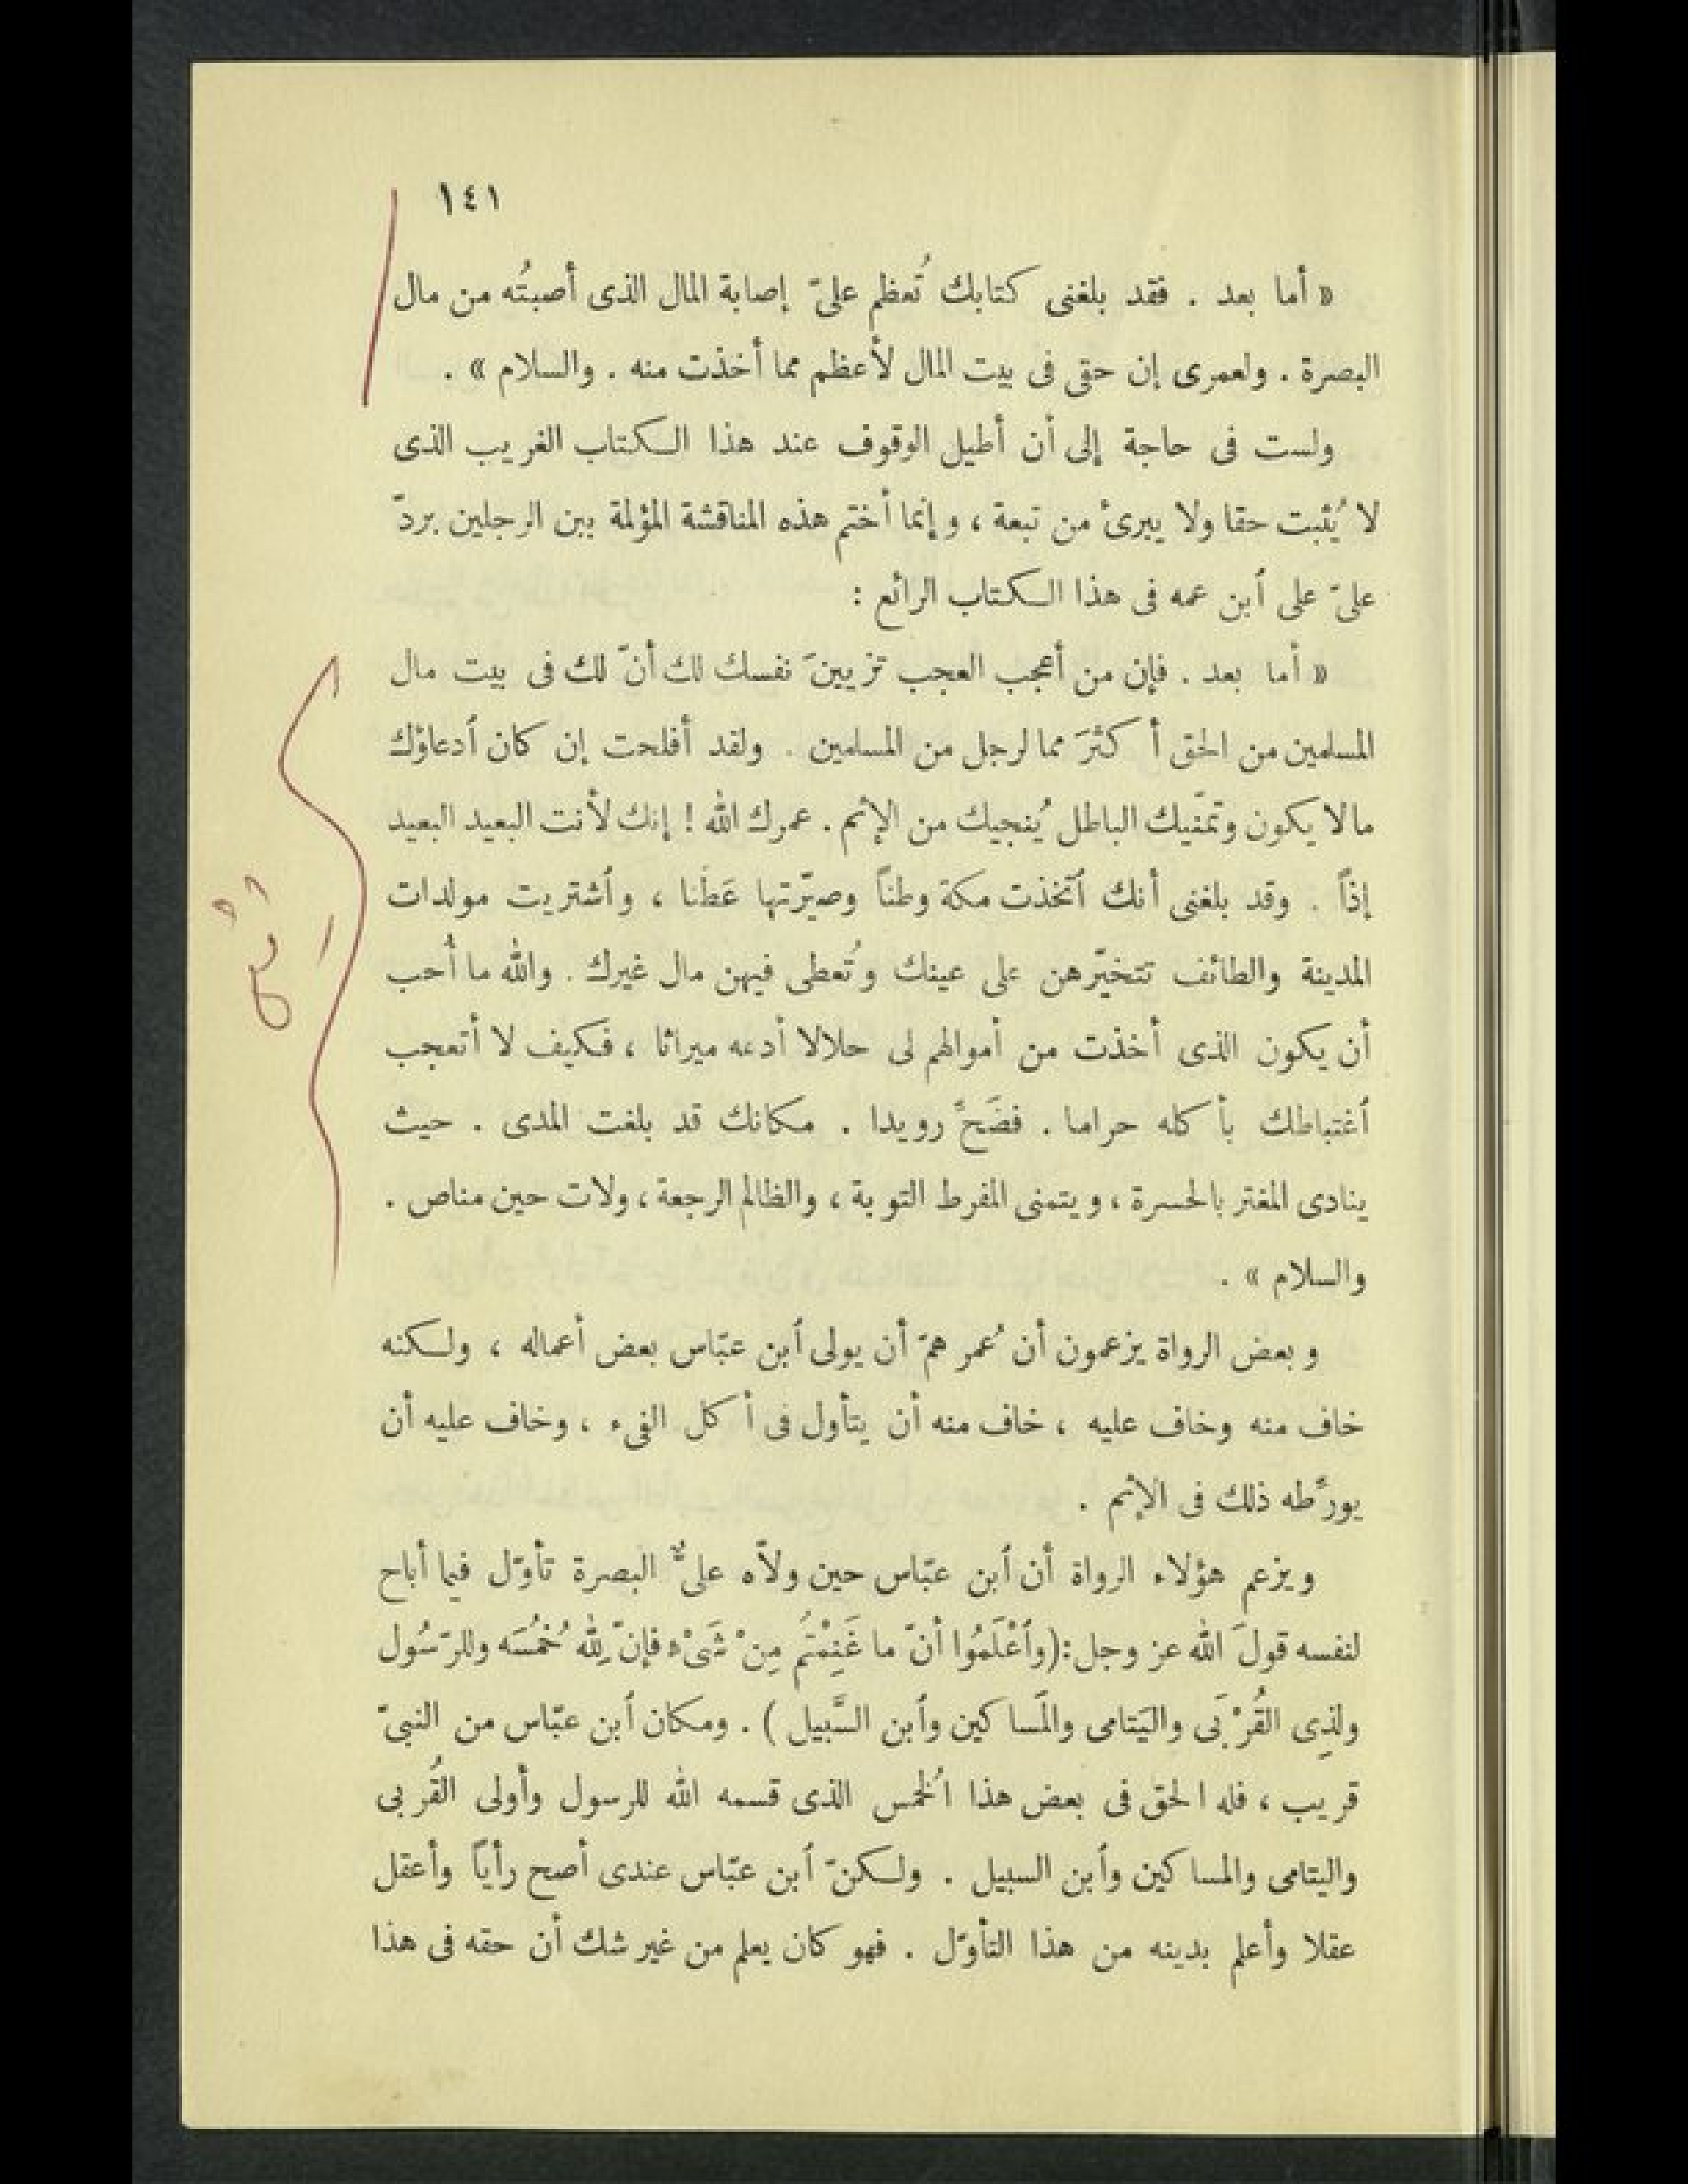 ١٤١
« أما بعد . فقد بلغنى كتابك تُعظم علىّ إصابة المال الذى أصبتُه من مال
البصرة . ولعمرى إن حقى فى بيت المال لأعظم مما أخذت منه . والسلام » .
ولست فى حاجة إلى أن أطيل الوقوف عند هذا الكتاب الغريب الذى
لا يُثبت حقا ولا يبرئ من تبعة ، وإنما أختم هذه المناقشة المؤلمة بين الرجلين بردّ
علىّ على ٱبن عمه فى هذا الكتاب الرائع :
« أما بعد . فإن من أعجب العجب تزيينَ نفسك لك أنّ لك فى بيت مال
المسلمين من الحق أكثرَ مما لرجل من المسلمين . ولقد أفلحت إن كان ٱدعاؤك
مالا يكون وتمنّيك الباطل يُنجيك من الإثم . عمرك الله ! إنك لأنت البعيد البعيد
إذاً . وقد بلغنى أنك ٱتخذت مكة وطناً وصيّرتها عَطَنا ، وٱشتريت مولدات
المدينة والطائف تتخيّرهن على عينك وتُعطى فيهن مال غيرك . والله ما أُحب
أن يكون الذى أخذت من أموالهم لى حلالا أدعه ميراثا ، فكيف لا أتعجب
ٱغتباطك بأكله حراما . فضَحِّ رويدا . مكانك قد بلغت المدى . حيث
ينادى المغتر بالحسرة ، ويتمنى المفرط التوبة ، والظالم الرجعة ، ولات حين مناص .
والسلام » .
وبعض الرواة يزعمون أن عُمر همّ أن يولى ٱبن عبّاس بعض أعماله ، ولكنه
خاف منه وخاف عليه ، خاف منه أن يتأول فى أكل الفىء ، وخاف عليه أن
يورِّطه ذلك فى الإثم .
ويزعم هؤلاء الرواة أن ٱبن عبّاس حين ولاّه علىٌّ البصرة تأوّل فيما أباح
لنفسه قولَ الله عز وجل : (وٱعْلَمُوا أنّ ما غَنِمْتُم مِنْ شَىْء فإنّ لِلّه خُمُسَه وللرّسُول
ولذِى القُرْبَى واليَتامى والمَساكين وٱبن السَّبيل ) . ومكان ٱبن عبّاس من النبىّ
قريب ، فله الحق فى بعض هذا الخُمس الذى قسمه الله للرسول وأولى القُربى
واليتامى والمساكين وٱبن السبيل . ولكنّ ٱبن عبّاس عندى أصح رأياً وأعقل
عقلا وأعلم بدينه من هذا التأوّل . فهو كان يعلم من غير شك أن حقه فى هذا